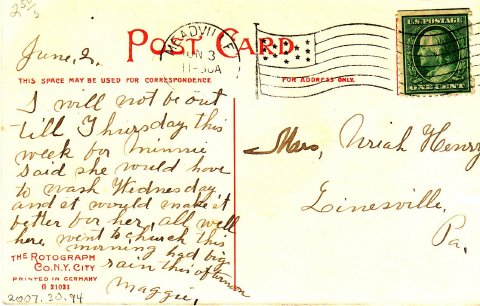 June, 2,
POST CARD
MEADVILLE
JUN 3
11-30A
U.S. POSTAGE
ONE CENT
THIS SPACE MAY BE USED FOR CORRESPONDENCE
FOR ADDRESS ONLY.
I will not be out
till Thursday this
week for Minnie
said she would have
to wash Wednesday
and it would make it
better for her, all well
here went to church this
morning had big
rain this afternoon
Maggie,
Mrs, Uriah Henry
Linesville,
Pa.
THE ROTOGRAPH
CO. N.Y. CITY
PRINTED IN GERMANY
G 21021
2007.30.94